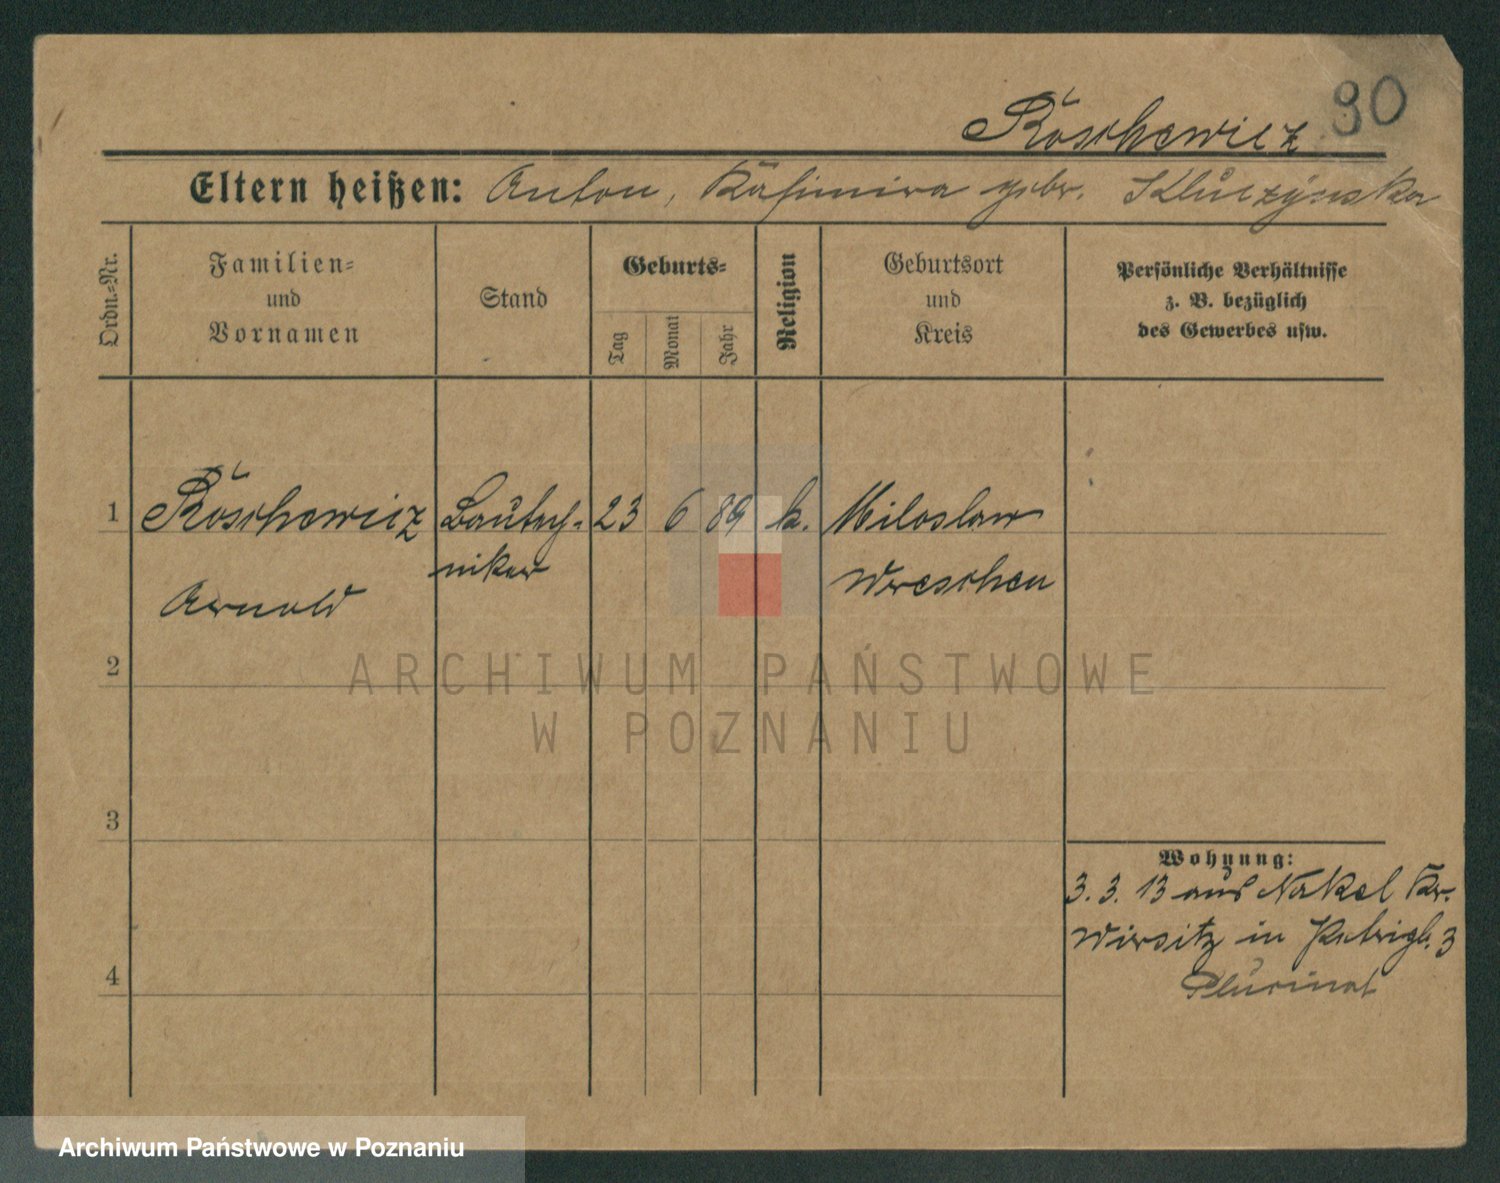 Röschewicz 90
Eltern heißen: Anton, Kasimira gebr. Kluczynska
Ordn.-Nr.
Familien-
und
Vornamen
Stand
Geburts-
Tag
Monat
Jahr
Religion
Geburtsort
und
Kreis
Persönliche Verhältnisse
z. B. bezüglich
des Gewerbes usw.
1 Röschewicz Bautech- 23 6 89 k. Miloslaw
niker Wreschen
Arnold
2
ARCHIWUM PAŃSTWOWE
W POZNANIU
3
Wohnung:
3.3.13 aus Nakel Kr.
Wirsitz in 3
4
Archiwum Państwowe w Poznaniu